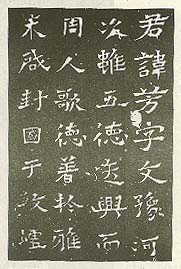 君諱芳字文豫河
雖五德迭興而
周人歌德著於雅
未啟封國于敦煌